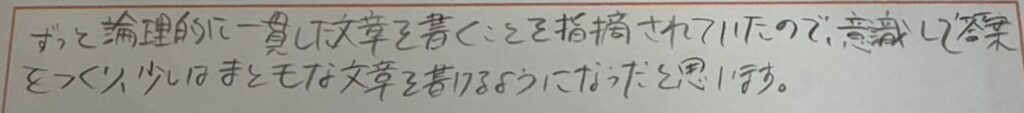 ずっと論理的に一貫した文章を書くことを指摘されていたので、意識して答案
をつくり、少しはまともな文章を書けるようになったと思います。